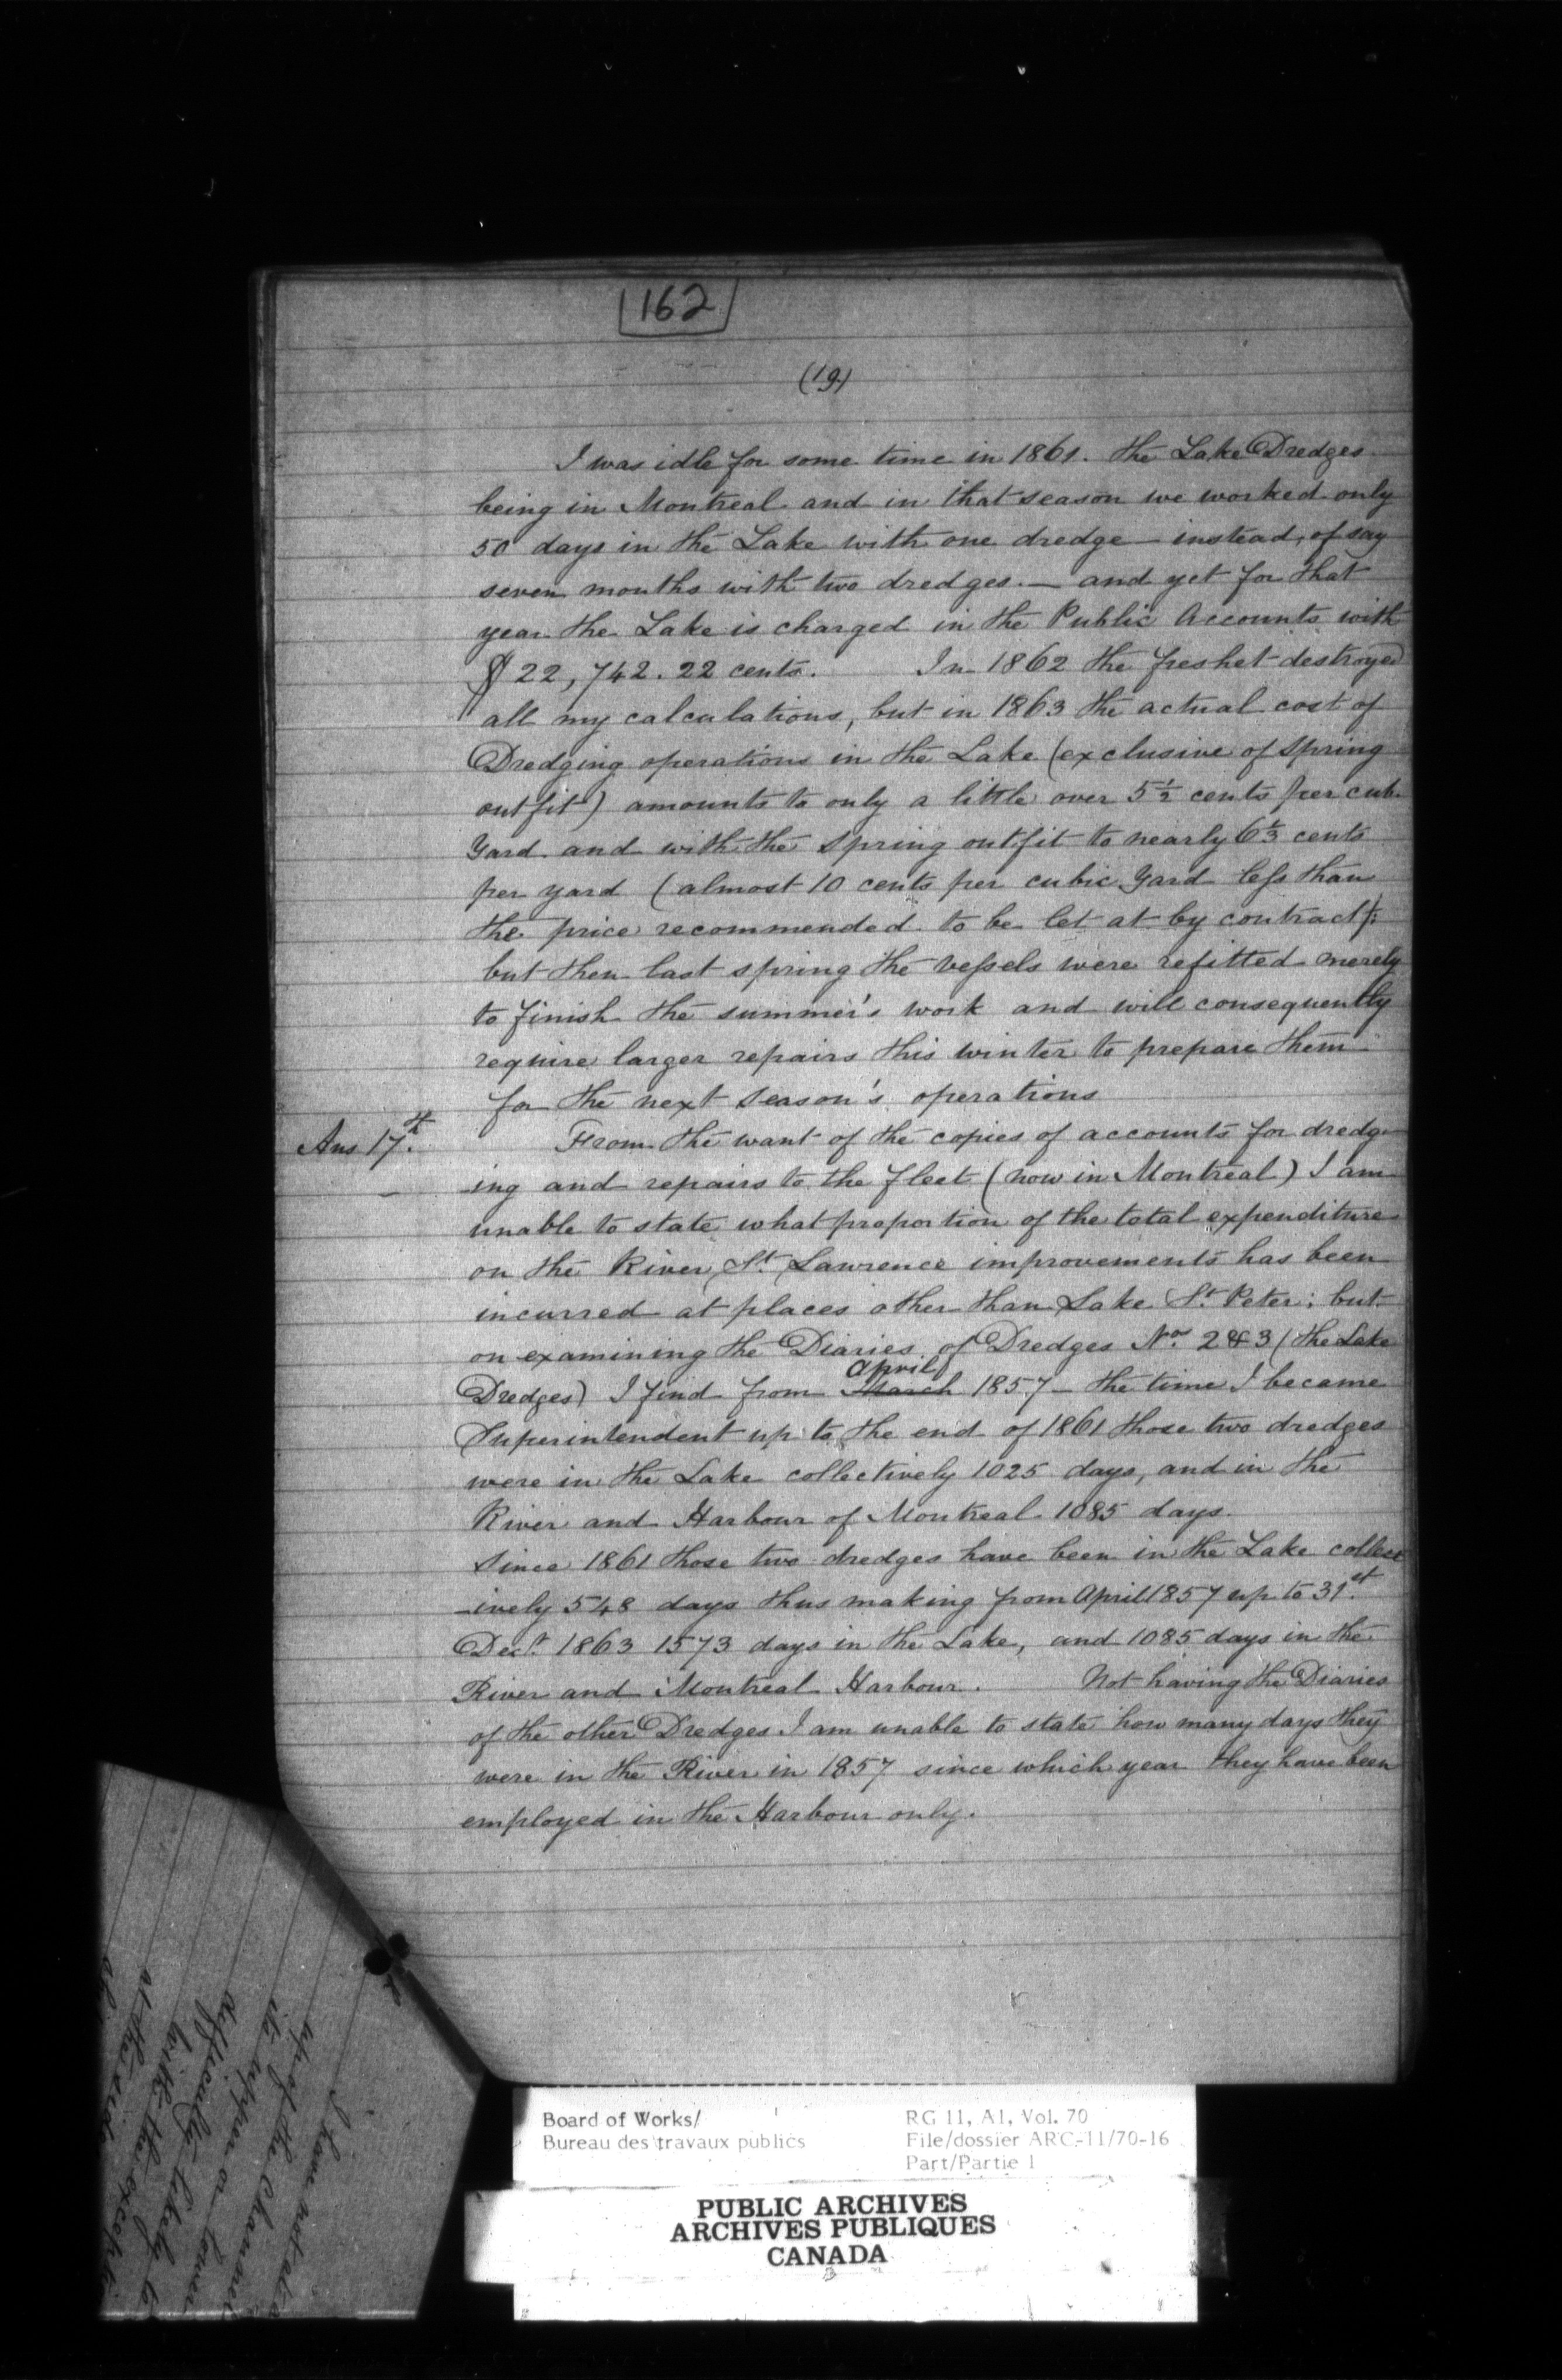 162
(19)
I was idle for some time in 1861. the Lake Dredges
being in Montreal and in that season we worked only
50 days in the Lake with one dredge — instead, of say
seven months with two dredges. — and yet for that
year the Lake is charged in the Public Accounts with
$22,742.22 cents. In 1862 the freshet destroyed
all my calculations, but in 1863 the actual cost of
Dredging operations in the Lake (exclusive of Spring
outfit) amounts to only a little over 5½ cents per cub.
Yard and with the Spring outfit to nearly 6⅓ cents
per yard (almost 10 cents per cubic Yard less than
the price recommended to be let at by contract):
but then last spring the vessels were refitted merely
to finish the summer's work and will consequently
require larger repairs this winter to prepare them
for the next season's operations
Ans 17th. From the want of the copies of accounts for dredg-
ing and repairs to the fleet (now in Montreal) I am
unable to state what proportion of the total expenditure
on the River St. Lawrence improvements has been
incurred at places other than Lake St. Peter; but
on examining the Diaries of Dredges Nos. 2 & 3 (the Lake
April
Dredges) I find from March 1857 — the time I became
Superintendent up to the end of 1861 those two dredges
were in the Lake collectively 1025 days, and in the
River and Harbour of Montreal 1085 days.
Since 1861 those two dredges have been in the Lake collect
-ively 548 days thus making from April 1857 up to 31st.
Decr. 1863 1573 days in the Lake, and 1085 days in the
River and Montreal Harbour. Not having the Diaries
of the other Dredges I am unable to state how many days they
were in the River in 1857 since which year they have been
employed in the Harbour only.
I have not
up of the Channel
its upper or lower
difficulty likely to
with the exception
at the
Board of Works/
Bureau des travaux publics
RG 11, A1, Vol. 70
File/dossier ARC-11/70-16
Part/Partie 1
PUBLIC ARCHIVES
ARCHIVES PUBLIQUES
CANADA